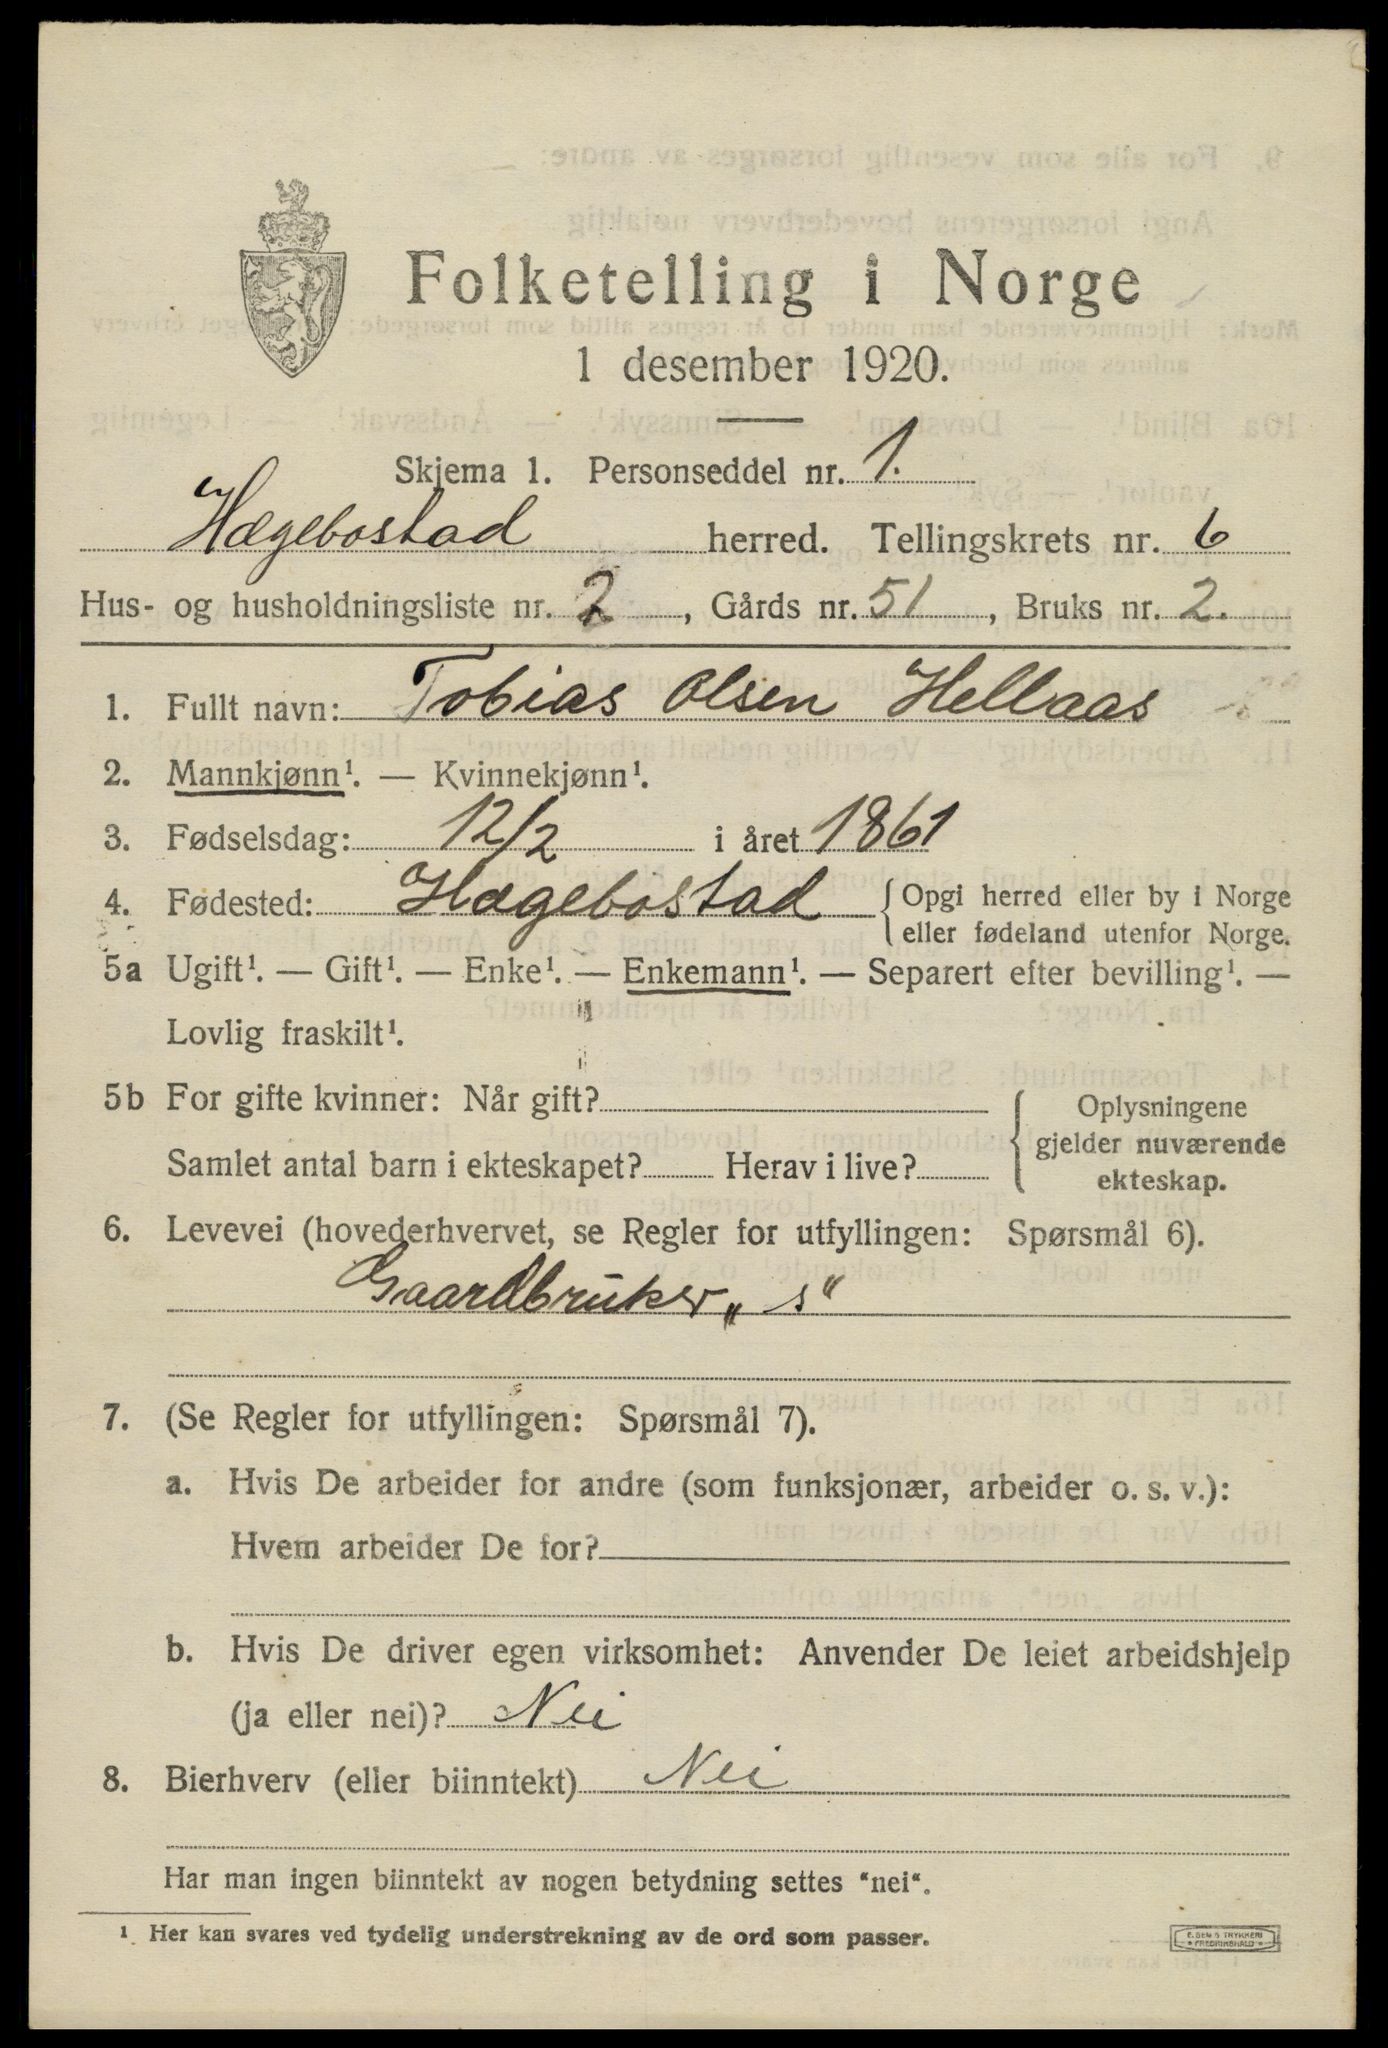 Folketelling i Norge
1 desember 1920.
Skjema 1. Personseddel nr. 1.
Hægebostad herred. Tellingskrets nr. 6
Hus- og husholdningsliste nr. 2, Gårds nr. 51, Bruks nr. 2.
1. Fullt navn: Tobias Olsen Hellaas
2. Mannkjønn¹. — Kvinnekjønn¹.
3. Fødselsdag: 12/2 i året 1861
4. Fødested: Hægebostad { Opgi herred eller by i Norge
eller fødeland utenfor Norge.
5a Ugift¹. — Gift¹. — Enke¹. — Enkemann¹. — Separert efter bevilling¹. —
Lovlig fraskilt¹.
5b For gifte kvinner: Når gift?
Samlet antal barn i ekteskapet? Herav i live?
{ Oplysningene
gjelder nuværende
ekteskap.
6. Levevei (hovederhvervet, se Regler for utfyllingen: Spørsmål 6).
Gaardbruker „s“
7. (Se Regler for utfyllingen: Spørsmål 7).
a. Hvis De arbeider for andre (som funksjonær, arbeider o. s. v.):
Hvem arbeider De for?
b. Hvis De driver egen virksomhet: Anvender De leiet arbeidshjelp
(ja eller nei)? Nei
8. Bierhverv (eller biinntekt) Nei
Har man ingen biinntekt av nogen betydning settes “nei“.
¹ Her kan svares ved tydelig understrekning av de ord som passer.